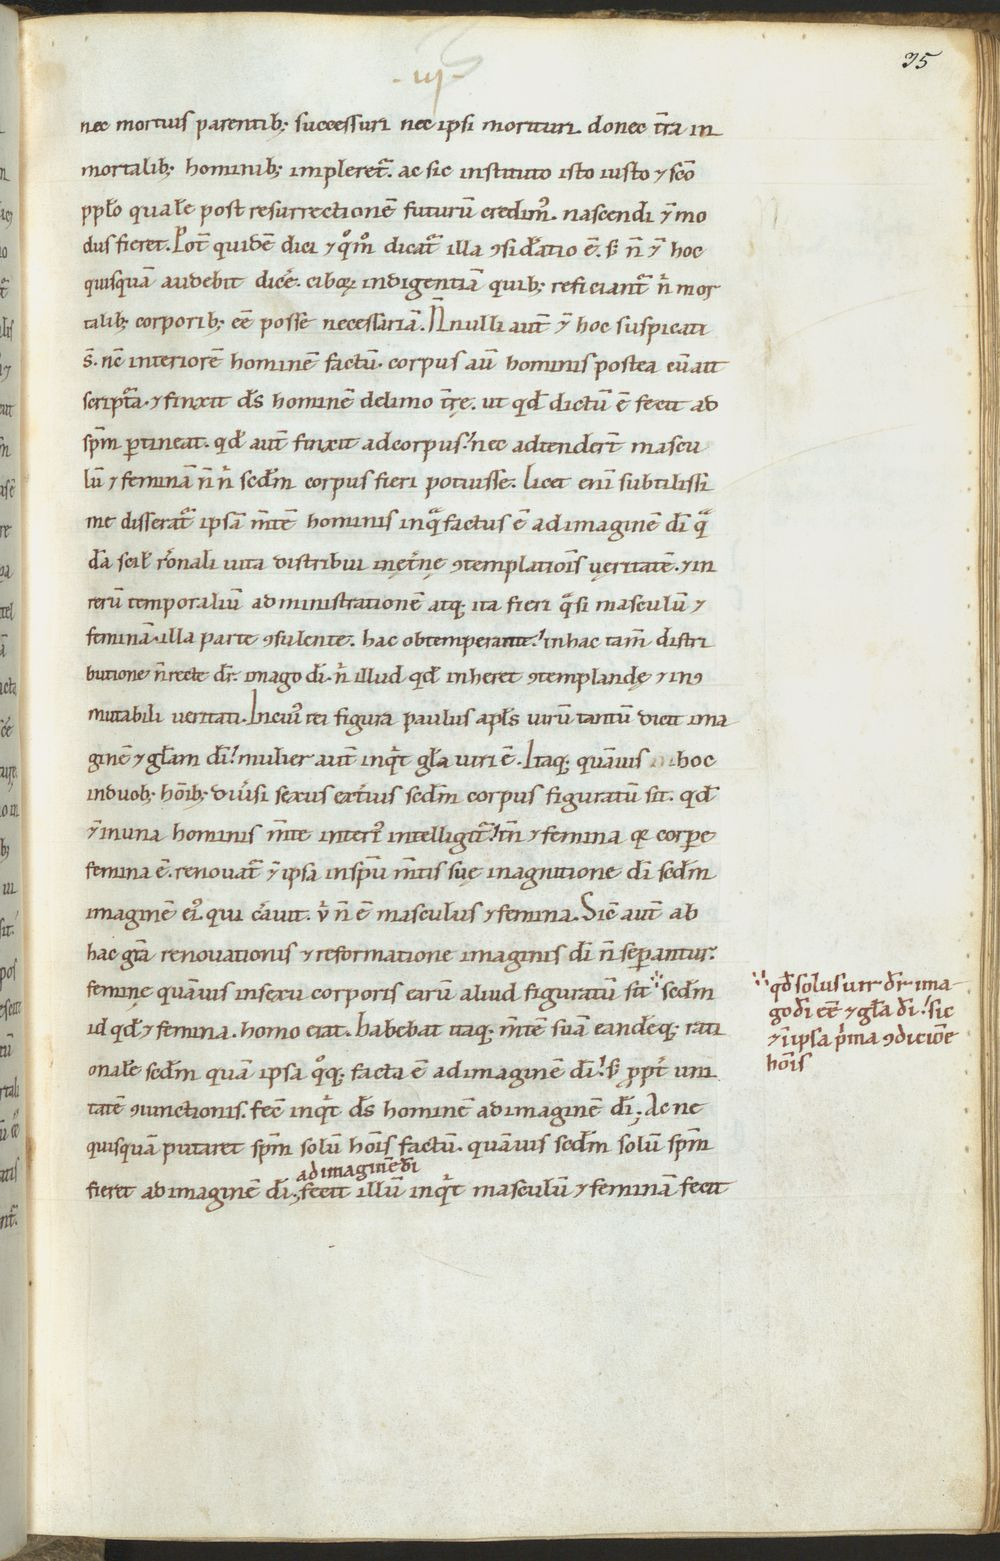 ·iiij·
35
nec mortuis parentib; successuri nec ipsi morituri. donec t̄ra in
mortalib; hominib; impleret᷑. ac sic instituto isto iusto ⁊ sc̄o
pp̄lo quale post resurrectionē futurū credim᷒. nascendi ⁊̄ mo
dus fieret. Pot̄ quidē dici ⁊ qͦmͦ dicat᷑ illa ꝯsid̄atio ē. s; n̄ ⁊̄ hoc
quisquā audebit dicē. ciboꝝ indigentiā quib; reficiant᷑ n̄ mor
talib; corporib; eē posse necessariā. Nnulli aut̄ ⁊̄ hoc suspicati
s̄. nc̄ interiorē hominē factū. corpus aū hominis postea cū ait
script᷑a. ⁊ finxit d̄s hominē de limo t̄rę. ut qd̄ dictū ē fecit ad
sp̄m ꝑtineat. qd̄ aut̄ finxit ad corpus; nec adtendert̄ mascu
lū ⁊ feminā n̄ n̄ sc̄dm corpus fieri potuisse. Licet eni subtilissi
me disserat᷑ ipsā m̄tē hominis in qͣ factus ē ad imaginē dī qͣ
dā scil̄ rōnali uita distribui in ęt̄nę ꝯtemplatiōis ueritatē. ⁊ in
rerū temporaliū administrationē atq; ita fieri qͣsi masculū ⁊
feminā. illa parte ꝯsulente. hac obtemperante; in hac tam̄ distri
butione n̄ recte dr̄. imago dī. n̄ illud qd̄ inheret ꝯtemplandę ⁊ inꝯ
mutabili ueritati. In cui᷒ rei figura paulus apl̄s uirū tantū dicit ima
ginē ⁊ gl̄am dī; mulier aut̄ inqͥt gl̄a uiri ē. Itaq; quāuis hoc
in duob; hōib; diu̾si sexus ext̾ius sc̄dm corpus figuratū sit. qd̄
⁊̄ in una hominis m̄te interi᷒ intelligit᷑; tn̄ ⁊ femina q̨ corpe
femina ē. renouat᷑ ⁊̄ ipsa in sp̄u m̄tis suę in agnitione dī sc̄dm
imaginē ei᷒. qui c̾auit. u̾ n̄ ē masculus ⁊ femina. Sic̄ aut̄ ab
hac gr̄a renouationis ⁊ reformatione imaginis dī n̄ seꝑantur.
feminę quāuis in sexu corporis earū aliud figuratū sit sc̄dm
id qd̄ ⁊ femina. homo erat. habebat itaq; m̄tē suā eandēq; rati
onale sc̄dm quā ipsa qͦq; facta ē ad imaginē dī; s; ꝓpt̾ uni
tatē ꝯiunctionis. fec̄ inqͥt d̄s hominē ad imaginē dī; Ac ne
quisquā putaret sp̄m solū hōis factū. quāuis sc̄dm solū sp̄m
ad imaginē dī
fieret ad imaginē dī; fecit illū inqͥt masculū ⁊ feminā fecit
qd̄ solus uir dr̄ ima
go dī eē ⁊ gl̄a dī; sic
⁊ in ipsa pͥma ꝯdiciōe
hōis